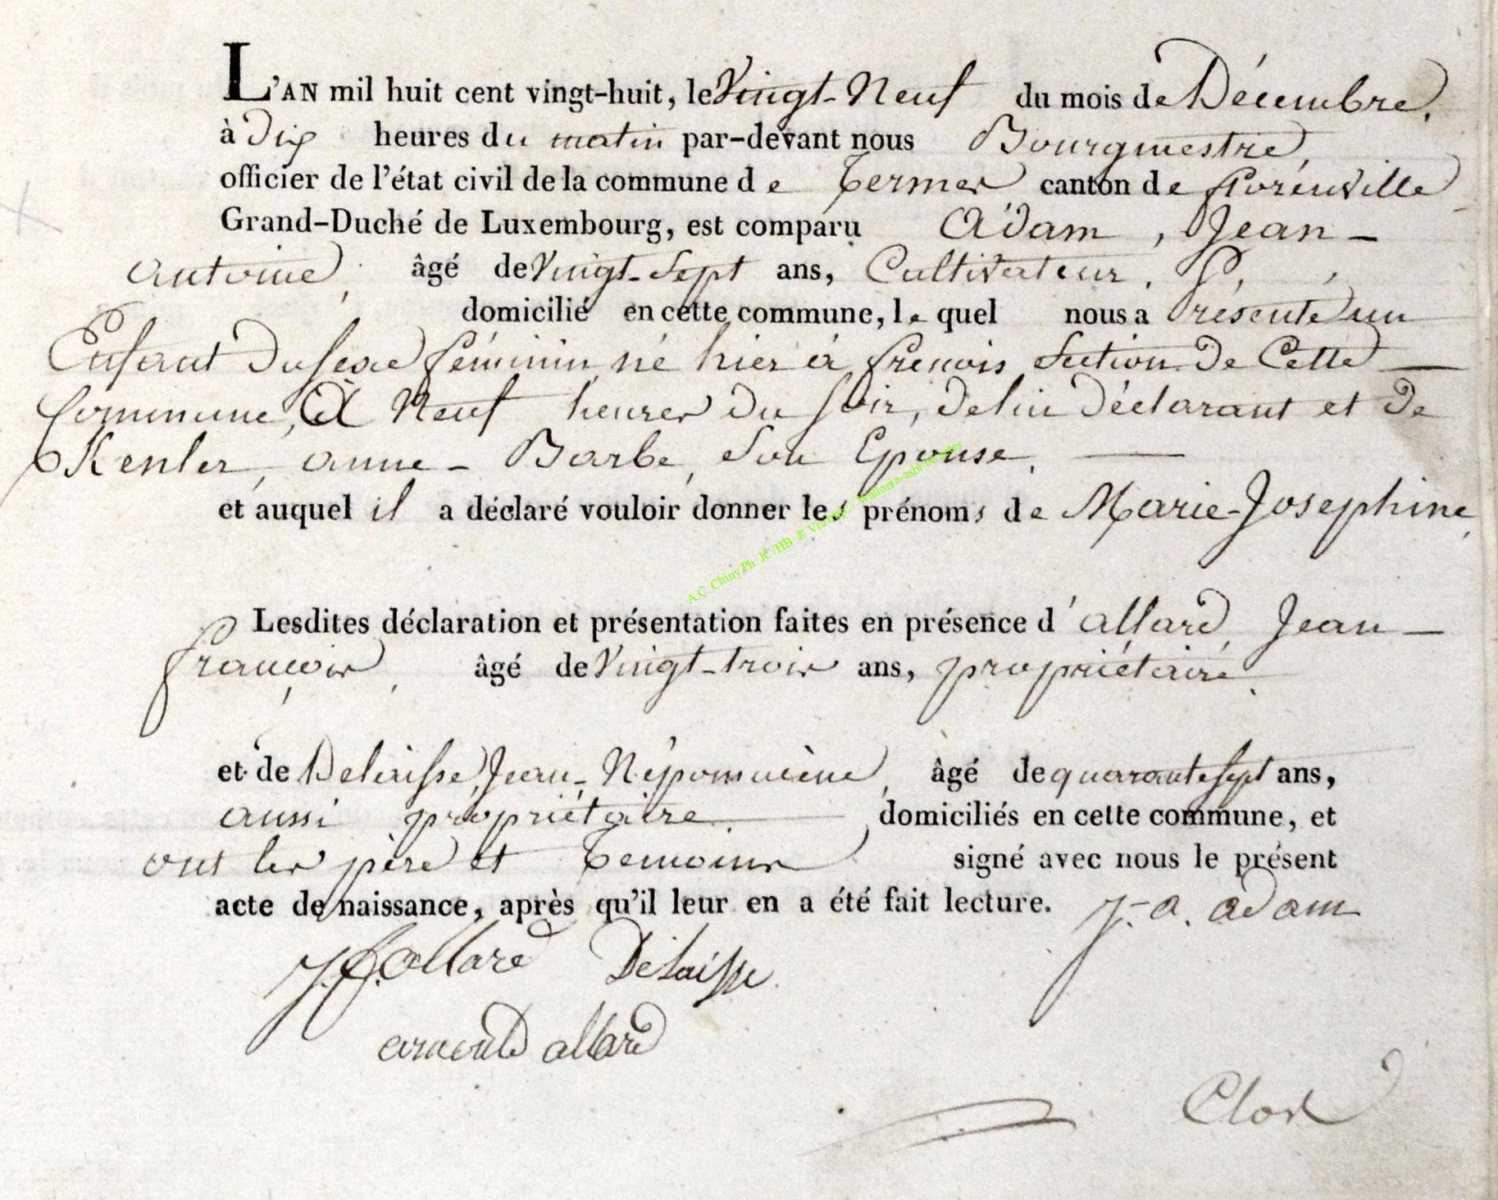 L'AN mil huit cent vingt-huit, le Vingt-Neuf du mois de Décembre,
à dix heures du matin par-devant nous Bourgmestre,
officier de l'état civil de la commune de Termes canton de florenville
Grand-Duché de Luxembourg, est comparu Adam, Jean-
antoine, âgé de Vingt-Sept ans, Cultivateur,
domicilié en cette commune, lequel nous a Présenté un
Enfant du sexe féminin, né hier à frenois Section de Cette
Commune, à Neuf heures du Soir, de lui déclarant et de
Kenler, anne-Barbe, Son Epouse,
et auquel il a déclaré vouloir donner les prénoms de Marie-Josephine,
Lesdites déclaration et présentation faites en présence d'allard, Jean-
françois, âgé de Vingt-trois ans, propriétaire,
et de Delaisse, Jean-Népomucène, âgé de quarante sept ans,
aussi propriétaire, domiciliés en cette commune, et
ont les père et Temoins signé avec nous le présent
acte de naissance, après qu'il leur en a été fait lecture. J.-a. adam
J.f. allard Delaisse
arnould allard
Clos